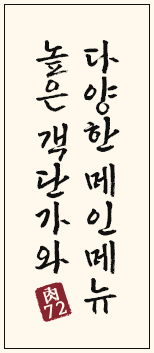 높은 객단가와
다양한 메인메뉴
肉
72